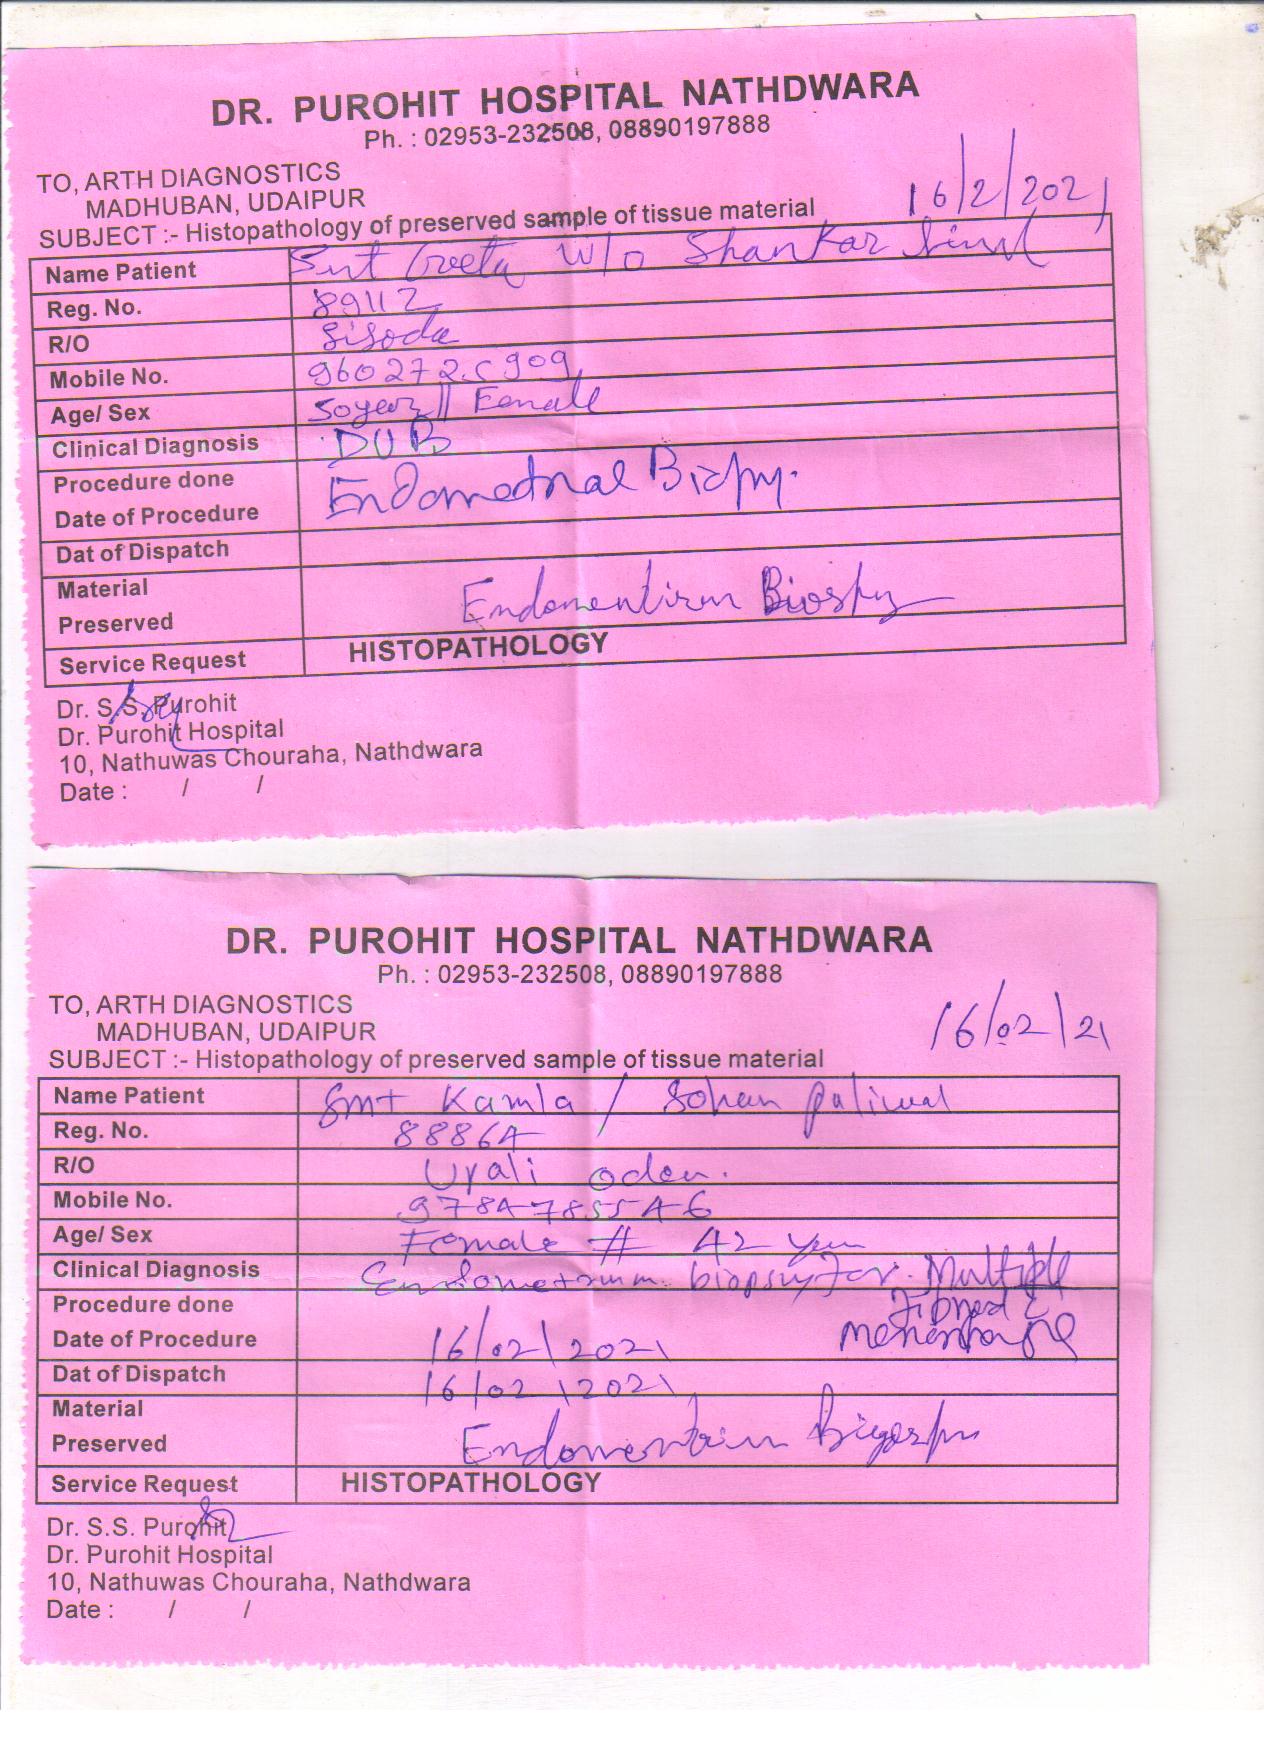 DR. PUROHIT HOSPITAL NATHDWARA
Ph. : 02953-232508, 08890197888
TO, ARTH DIAGNOSTICS
MADHUBAN, UDAIPUR
16/2/2021
SUBJECT :- Histopathology of preserved sample of tissue material
Name Patient Smt Geeta W/o Shankar
Reg. No. 89112
R/O Sisoda
Mobile No.
Age/ Sex 50year || Female
Clinical Diagnosis DUB
Procedure done Endometrial Biopy.
Date of Procedure
Dat of Dispatch
Material Endomentirm Biospy
Preserved
Service Request HISTOPATHOLOGY
Dr. S.S. Purohit
Dr. Purohit Hospital
10, Nathuwas Chouraha, Nathdwara
Date : / /
DR. PUROHIT HOSPITAL NATHDWARA
Ph. : 02953-232508, 08890197888
TO, ARTH DIAGNOSTICS
MADHUBAN, UDAIPUR
16/02/21
SUBJECT :- Histopathology of preserved sample of tissue material
Name Patient Smt Kamla / Sohan paliwal
Reg. No. 88864
R/O Upali oden.
Mobile No. 9784785546
Age/ Sex Female # 42 year
Clinical Diagnosis Endometrium biopsy for. Multiple
Procedure done
Date of Procedure 16/02/2021
Dat of Dispatch 16/02/2021
Material
Preserved
Service Request HISTOPATHOLOGY
Dr. S.S. Purohit
Dr. Purohit Hospital
10, Nathuwas Chouraha, Nathdwara
Date : / /